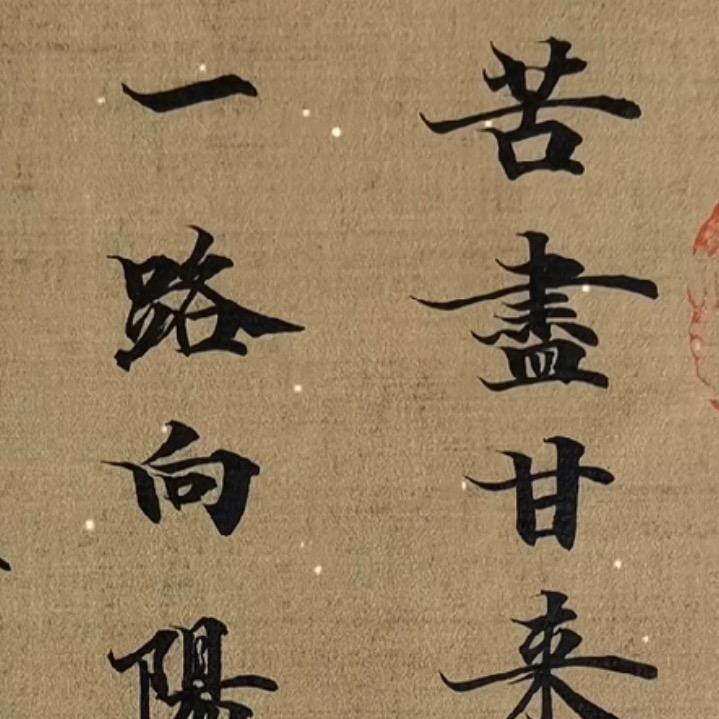 苦盡甘来
一路向陽